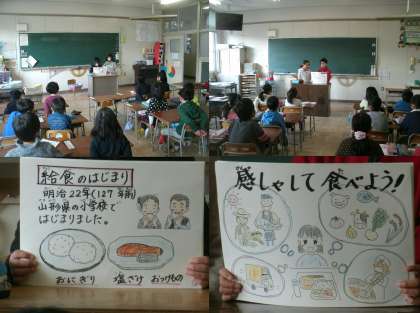 給食のはじまり
明治22年(127年前)
山形県の小学校で
はじまりました。
おにぎり 塩ざけ おつけもの
感しゃして食べよう!